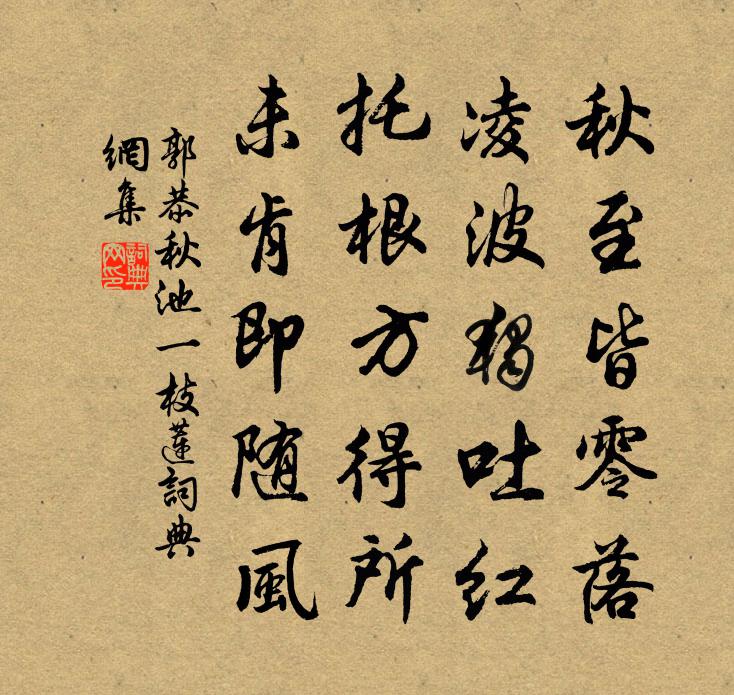 秋至皆零落
凌波獨吐红
托根方得所
未肯即随風
郭恭秋池一枝蓮詞典
網集
詞典
网印